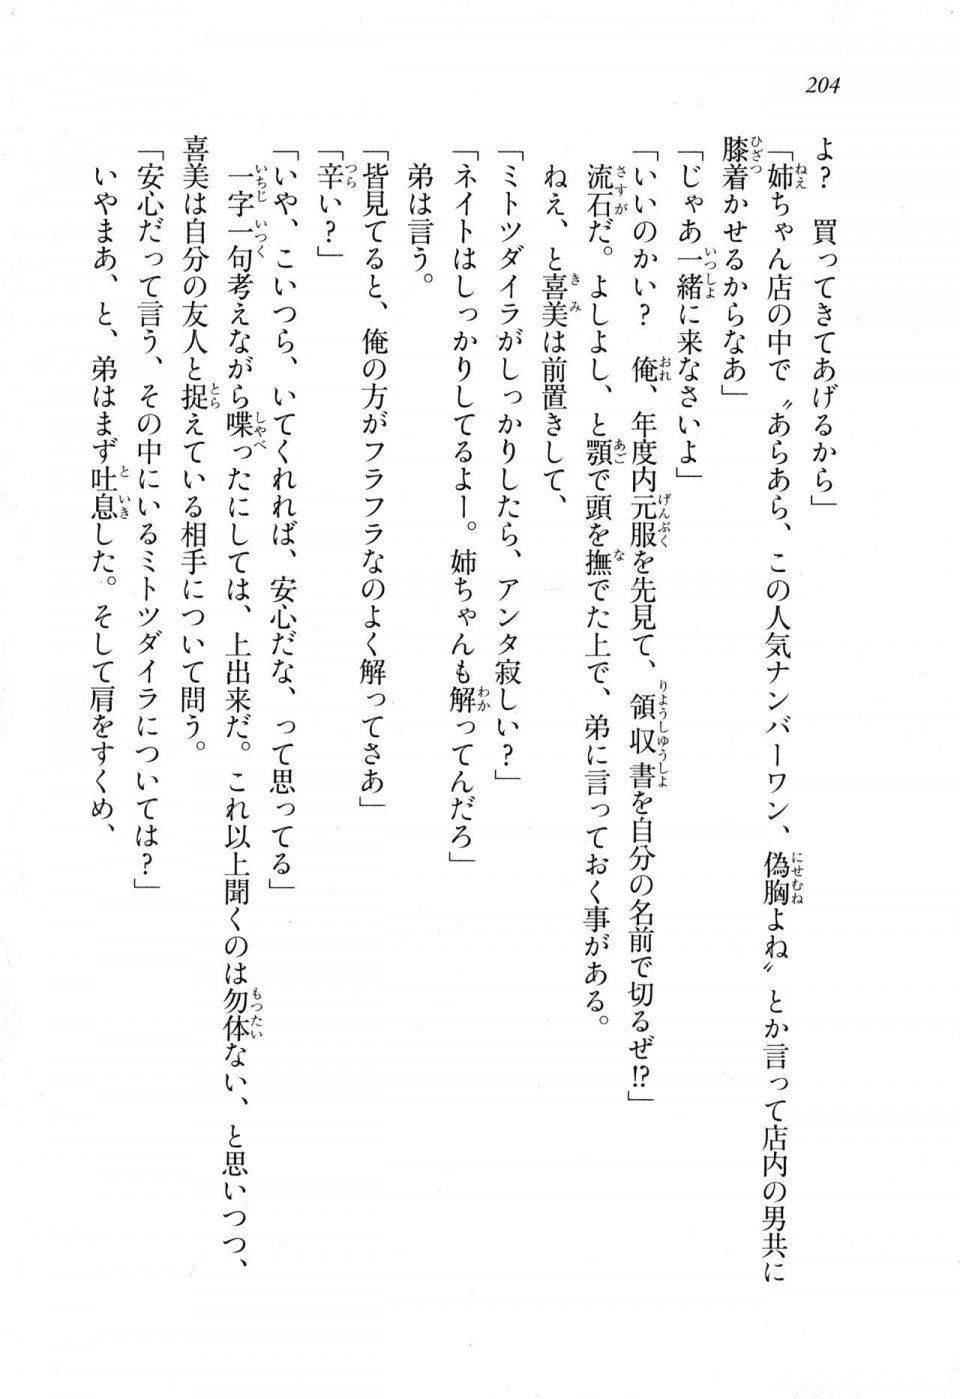 204
よ？　買ってきてあげるから」
「姉ちゃん店の中で〝あらあら、この人気ナンバーワン、偽胸よね〟とか言って店内の男共に
膝着かせるからなあ」
「じゃあ一緒に来なさいよ」
「いいのかい？　俺、年度内元服を先見て、領収書を自分の名前で切るぜ!?」
流石だ。よしよし、と顎で頭を撫でた上で、弟に言っておく事がある。
ねえ、と喜美は前置きして、
「ミトツダイラがしっかりしたら、アンタ寂しい？」
「ネイトはしっかりしてるよー。姉ちゃんも解ってんだろ」
弟は言う。
「皆見てると、俺の方がフラフラなのよく解ってさあ」
「辛い？」
「いや、こいつら、いてくれれば、安心だな、って思ってる」
一字一句考えながら喋ったにしては、上出来だ。これ以上聞くのは勿体ない、と思いつつ、
喜美は自分の友人と捉えている相手について問う。
「安心だって言う、その中にいるミトツダイラについては？」
いやまあ、と、弟はまず吐息した。そして肩をすくめ、